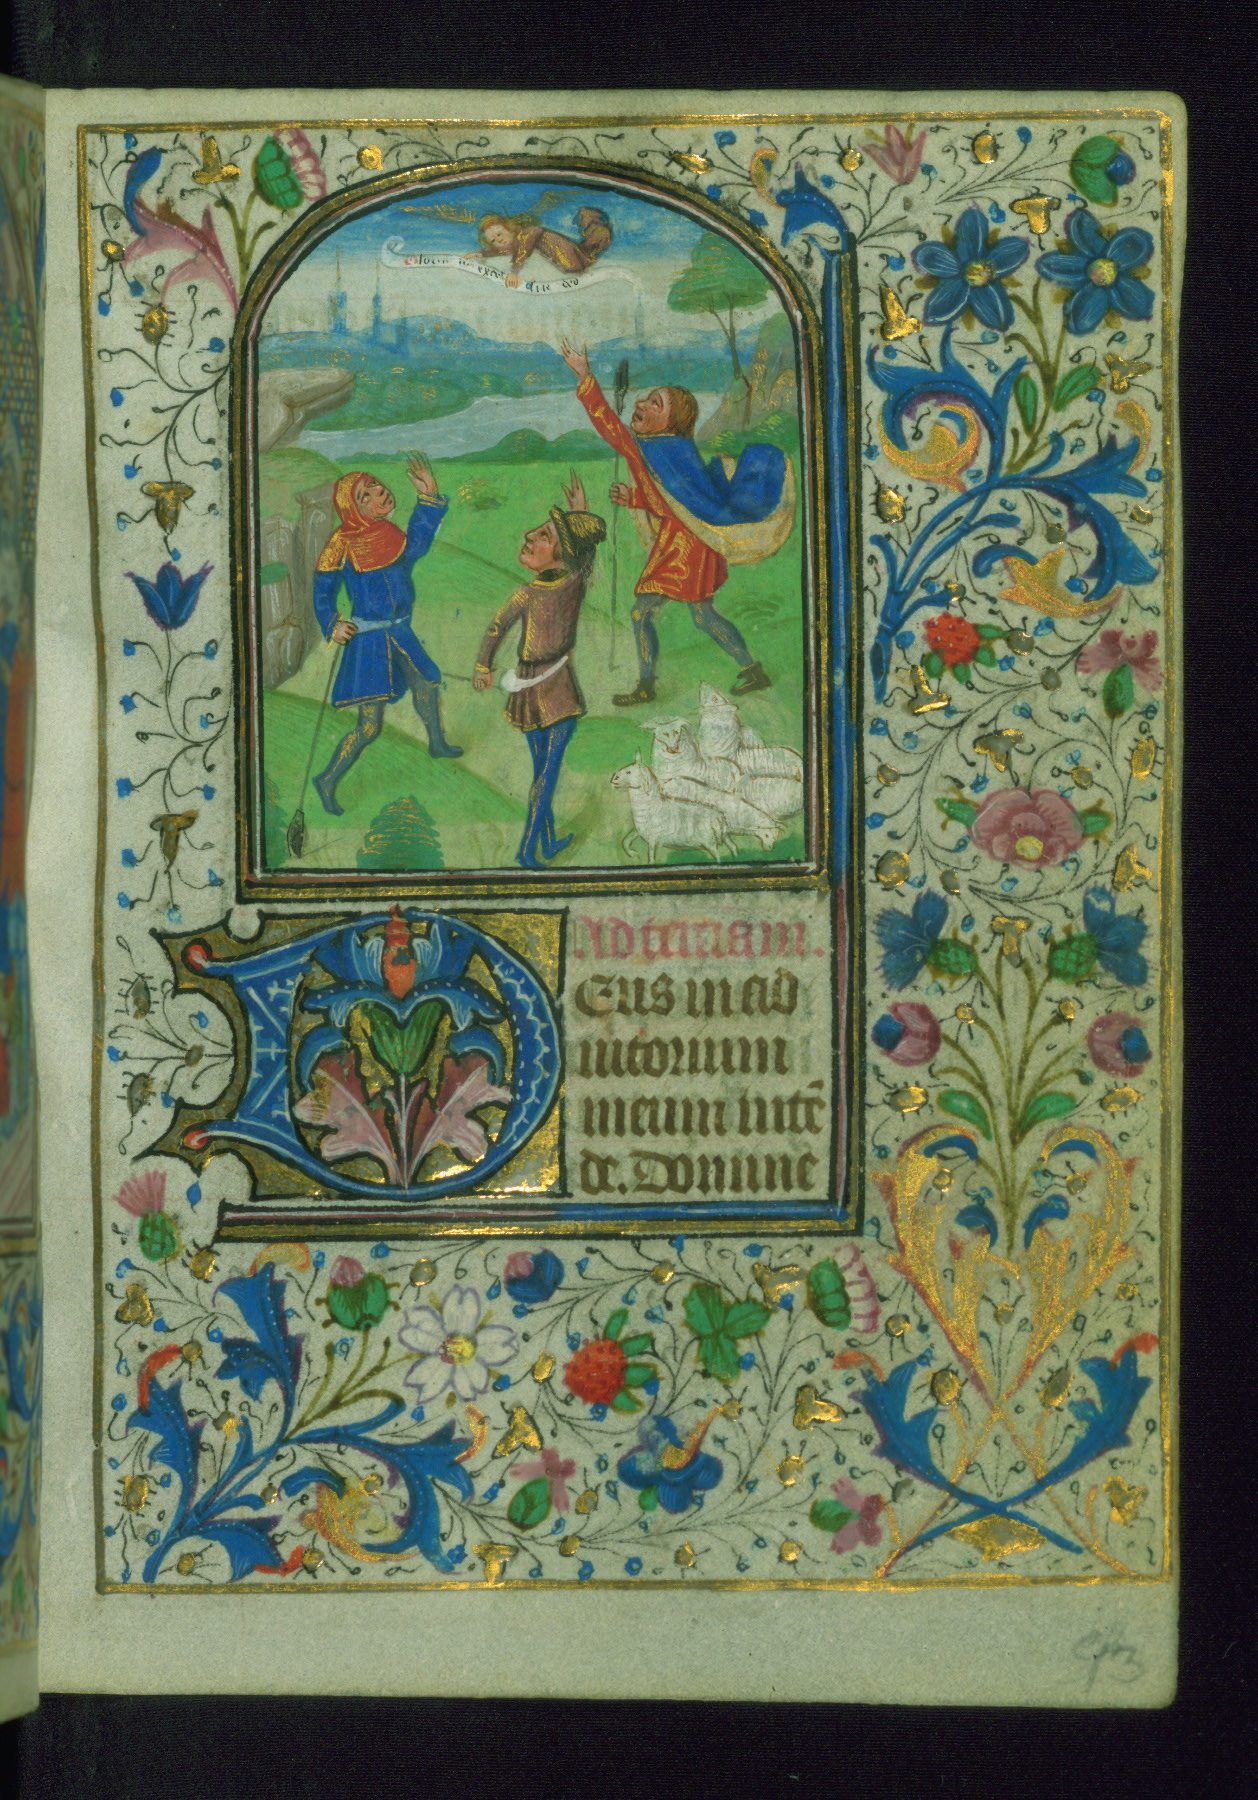 Gloria in excelsis deo
Ad terciam.
Deus in ad
iutorium
meum intē
de. Domine
93